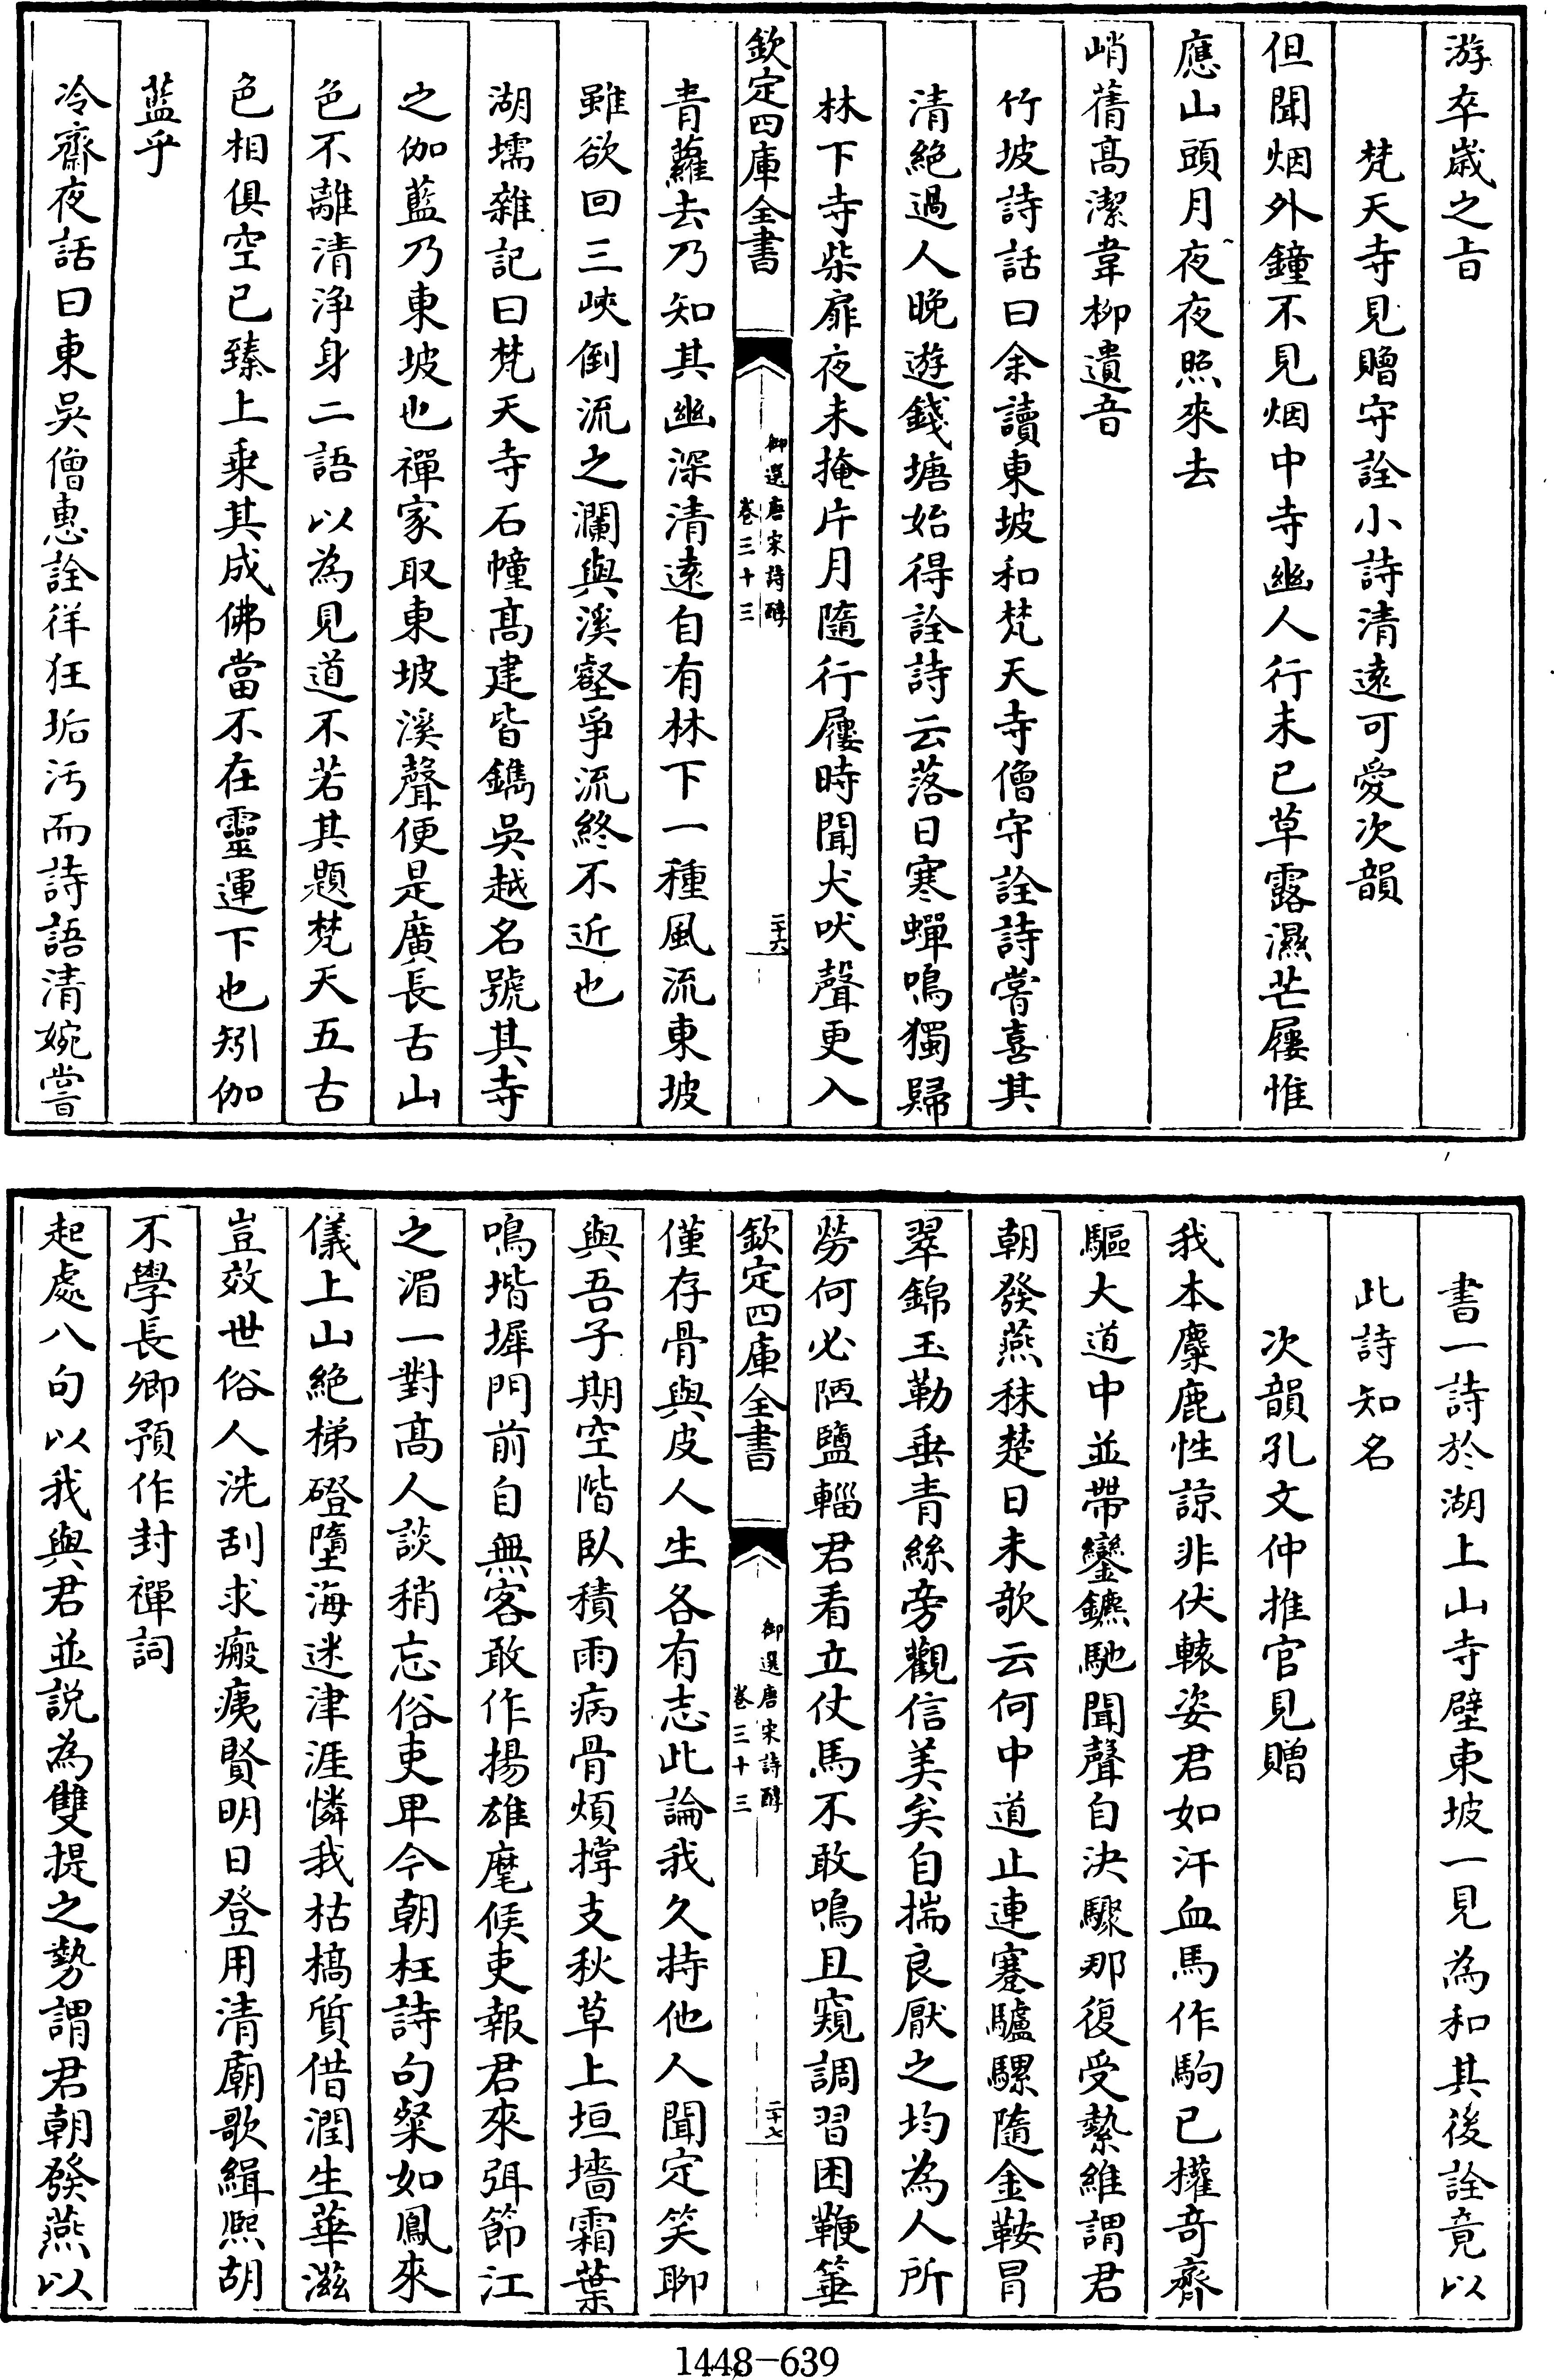 游卒歲之㫖
梵天寺見贈守詮小詩清逺可愛次韻
但聞烟外鐘不見烟中寺幽人行未已草露濕芒屨惟
應山頭月夜夜照來去
峭蒨髙潔韋柳遺音
竹坡詩話曰余讀東坡和梵天寺僧守詮詩嘗喜其
清絶過人晚遊錢塘始得詮詩云落日寒蟬鳴獨歸
林下寺柴扉夜未掩片月隨行屨時聞犬吠聲更入
欽定四庫全書
御選唐宋詩醇
卷三十三
二十六
青蘿去乃知其幽深清逺自有林下一種風流東坡
雖欲回三峽倒流之瀾與溪壑爭流終不近也
湖壖雜記曰梵天寺石幢髙建皆鐫吳越名號其寺
之伽藍乃東坡也禪家取東坡溪聲便是廣長舌山
色不離清浄身二語以為見道不若其題梵天五古
色相俱空已臻上乗其成佛當不在靈運下也矧伽
藍乎
冷齋夜話曰東吳僧惠詮徉狂垢汚而詩語清婉嘗
書一詩於湖上山寺壁東坡一見為和其後詮竟以
此詩知名
次韻孔文仲推官見贈
我本麋鹿性諒非伏轅姿君如汗血馬作駒已權竒齊
驅大道中並帶鑾鑣馳聞聲自決驟那復受縶維謂君
朝發燕秣楚日未欹云何中道止連蹇驢騾隨金鞍冒
翠錦玉勒垂青絲旁觀信美矣自揣良厭之均為人所
勞何必陋鹽輜君看立仗馬不敢鳴且窺調習困鞭箠
欽定四庫全書
御選唐宋詩醇
卷三十三
二十七
僅存骨與皮人生各有志此論我久持他人聞定笑聊
與吾子期空階臥積雨病骨煩撐支秋草上垣墻霜葉
鳴堦墀門前自無客敢作揚雄麾候吏報君來弭節江
之湄一對髙人談稍忘俗吏卑今朝枉詩句粲如鳳來
儀上山絶梯磴墮海迷津涯憐我枯槁質借潤生華滋
豈效世俗人洗刮求瘢痍賢明日登用清廟歌緝熙胡
不學長卿預作封禪詞
起處八句以我與君並說為雙提之勢謂君朝發燕以
1448-639